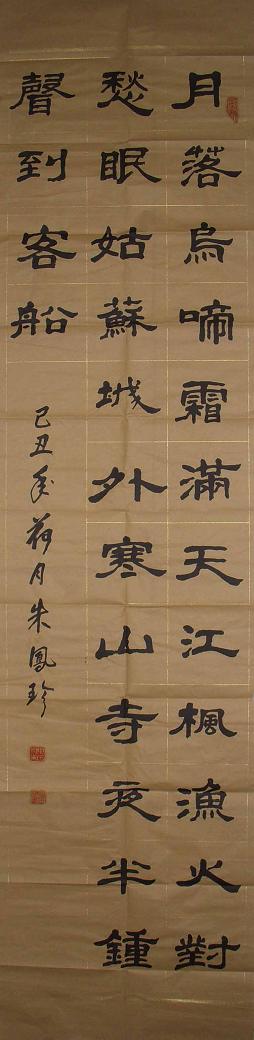 月落烏啼霜滿天江楓漁火對
愁眠姑蘇城外寒山寺夜半鍾
聲到客船
己丑年荷月朱鳳珍